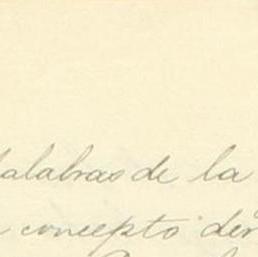 palabras de la
concepto der